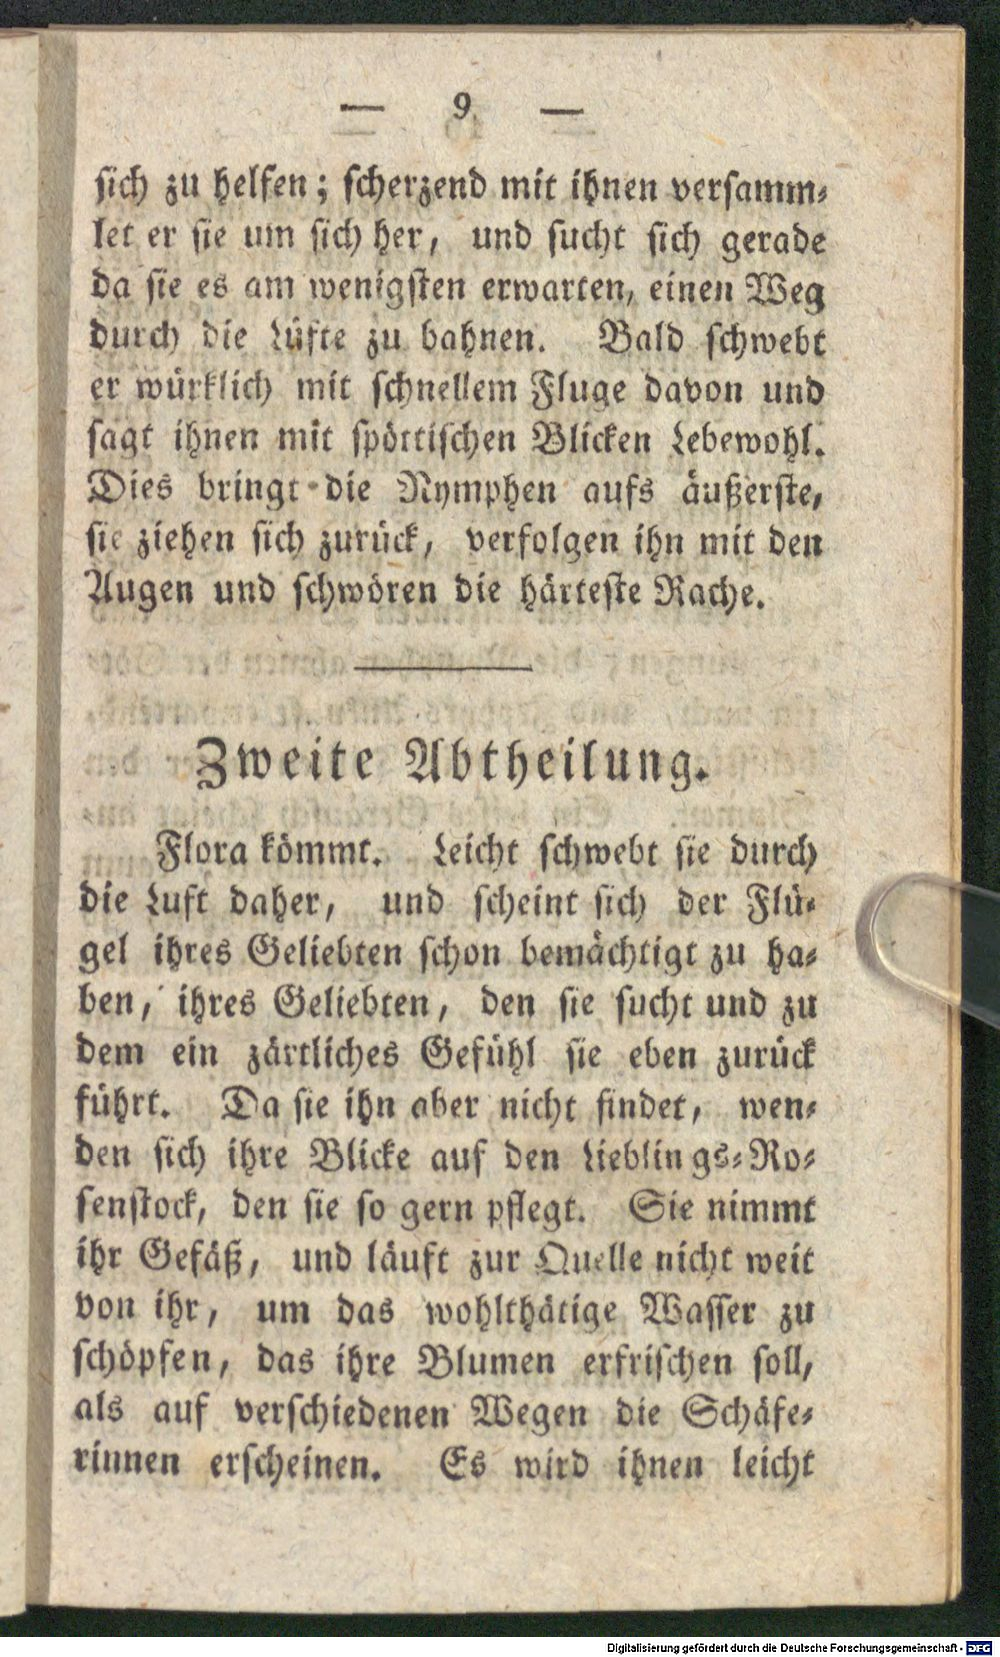 — 9 —
sich zu helfen; scherzend mit ihnen versamm-
let er sie um sich her, und sucht sich gerade
da sie es am wenigsten erwarten, einen Weg
durch die Lüfte zu bahnen. Bald schwebt
er würklich mit schnellem Fluge davon und
sagt ihnen mit spöttischen Blicken Lebewohl.
Dies bringt die Nymphen aufs äußerste,
sie ziehen sich zurück, verfolgen ihn mit den
Augen und schwören die härteste Rache.
Zweite Abtheilung.
Flora kömmt. Leicht schwebt sie durch
die Luft daher, und scheint sich der Flü-
gel ihres Geliebten schon bemächtigt zu ha-
ben, ihres Geliebten, den sie sucht und zu
dem ein zärtliches Gefühl sie eben zurück
führt. Da sie ihn aber nicht findet, wen-
den sich ihre Blicke auf den Lieblings-Ro-
senstock, den sie so gern pflegt. Sie nimmt
ihr Gefäß, und läuft zur Quelle nicht weit
von ihr, um das wohlthätige Wasser zu
schöpfen, das ihre Blumen erfrischen soll,
als auf verschiedenen Wegen die Schäfe-
rinnen erscheinen. Es wird ihnen leicht
Digitalisierung gefördert durch die Deutsche Forschungsgemeinschaft - DFG